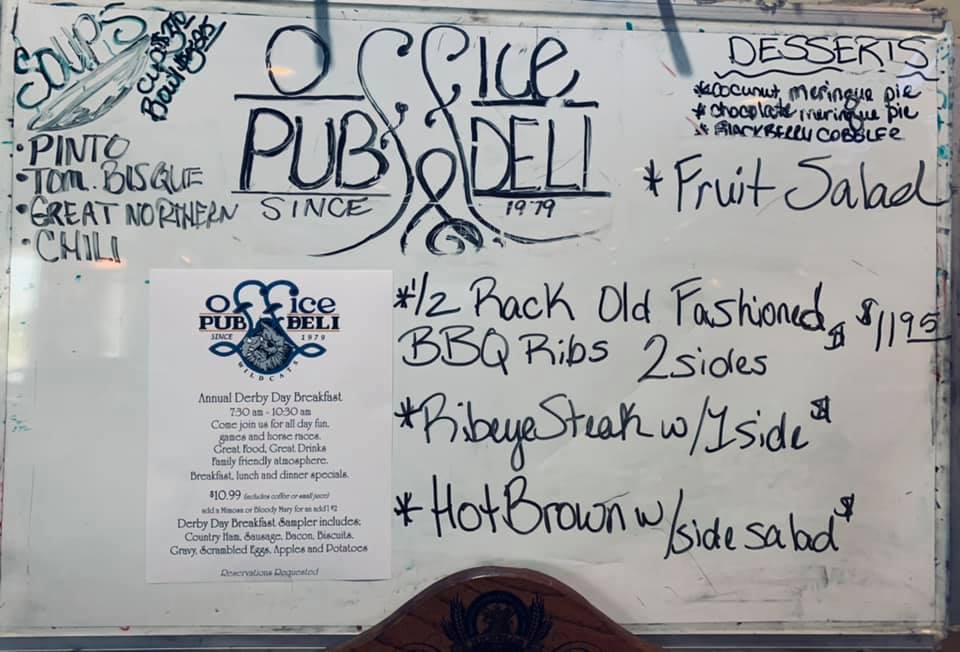 SOUPS
OFFICE
PUB DELI
SINCE 1979
• PINTO
• TOM. BISQUE
• GREAT NORTHERN
• CHILI
DESSERTS
* Cocunut meringue pie
* chocolate meringue pie
* BLACKBERRY COBBLER
* Fruit Salad
* 1/2 Rack Old Fashioned $ $11.95
BBQ Ribs 2 sides
* Ribeye Steak w/ 1 side $
* Hot Brown w/side salad $
office
PUB DELI
SINCE 1979
WILDCATS
Annual Derby Day Breakfast
7:30 am - 10:30 am
Come join us for all day fun,
games and horse races.
Great Food, Great Drinks
Family friendly atmosphere.
Breakfast, lunch and dinner specials.
$10.99 (includes coffee or small juice)
add a Mimosa or Bloody Mary for an add'l $2
Derby Day Breakfast Sampler includes:
Country Ham, Sausage, Bacon, Biscuits,
Gravy, Scrambled Eggs, Apples and Potatoes
Reservations Requested